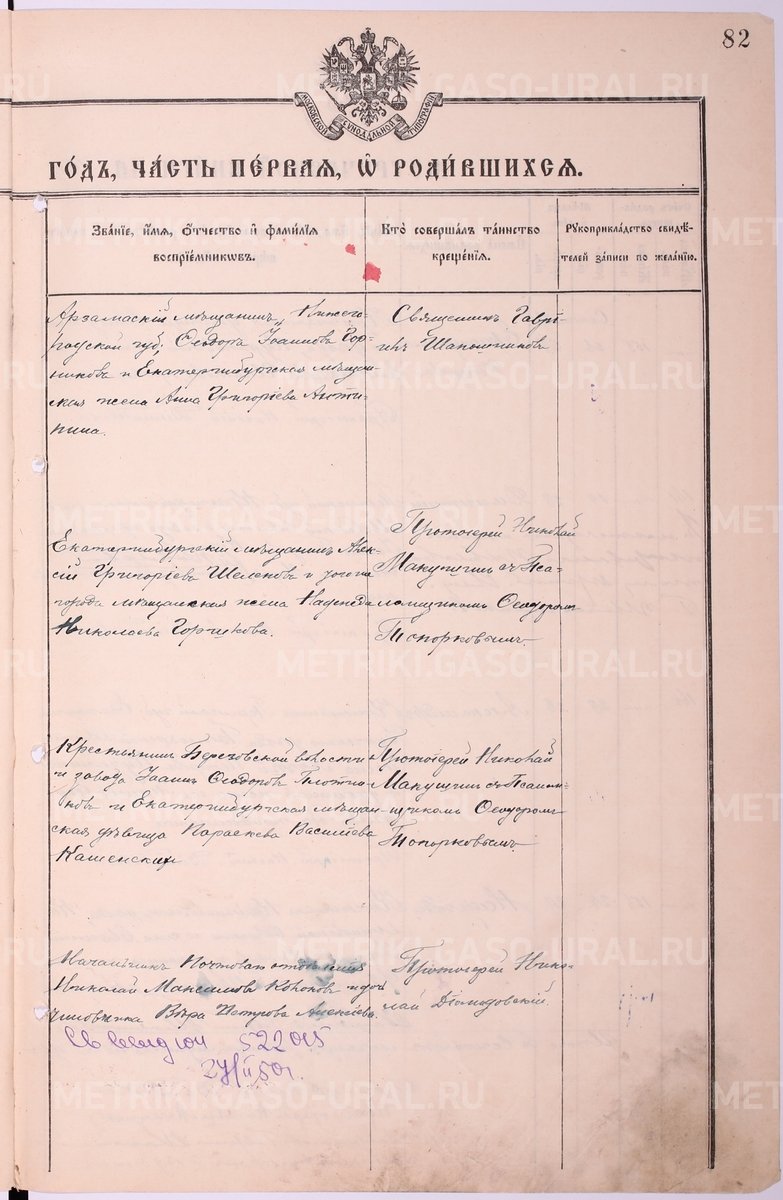 82
МОСКОВСКОЙ СѴНОДАЛЬНОЙ ТИПОГРАФІИ
ГО́ДЪ, ЧА́СТЬ ПЕ́РВАЯ, Ѽ РОДИ́ВШИХСЯ.
Зва́нїе, и́мя, ѻ҆́тчество и҆ фами́лїя
воспрїе́мникѡвъ.
Кто̀ соверша́лъ та́инство
креще́нїя.
Рꙋкоприкла́дство свидѣ́-
телей за́писи по жела́нїю.
Арзамаскій мѣщанинъ, Нижего-
родской губ, Ѳеодоръ Іоаннова Гор-
никова и Екатеринбургская мѣщан-
ская жена Анна Григоріева Анти-
пина.
Священникъ Гаврі-
илъ Шапошниковъ
Екатеринбургскій мѣщанинъ Алек-
сій Григоріевъ Шеленовъ и того же
города мѣщанская жена Надежда
Николаева Горшкова.
Протоіерей Николай
Макушинъ съ Пса-
ломщикомъ Ѳеодоромъ
Топорковымъ.
Крестьянинъ Березовской волости
и завода Іоаннъ Ѳеодоровъ Плотни-
ковъ и Екатеринбургская мѣщан-
ская дѣвица Параскева Васильева
Кашенских
Протоіерей Николай
Макушинъ съ Псалом-
щикомъ Ѳеодоромъ
Топорковымъ.
Начальникъ Почтоваго отдѣленія
Николай Максимовъ и доч
чиновника Вѣра Петрова Алексіева.
Протоіерей Нико-
лай Діомидовскій.
522015
27/II 50г.
METRIKI.GASO-URAL.RU